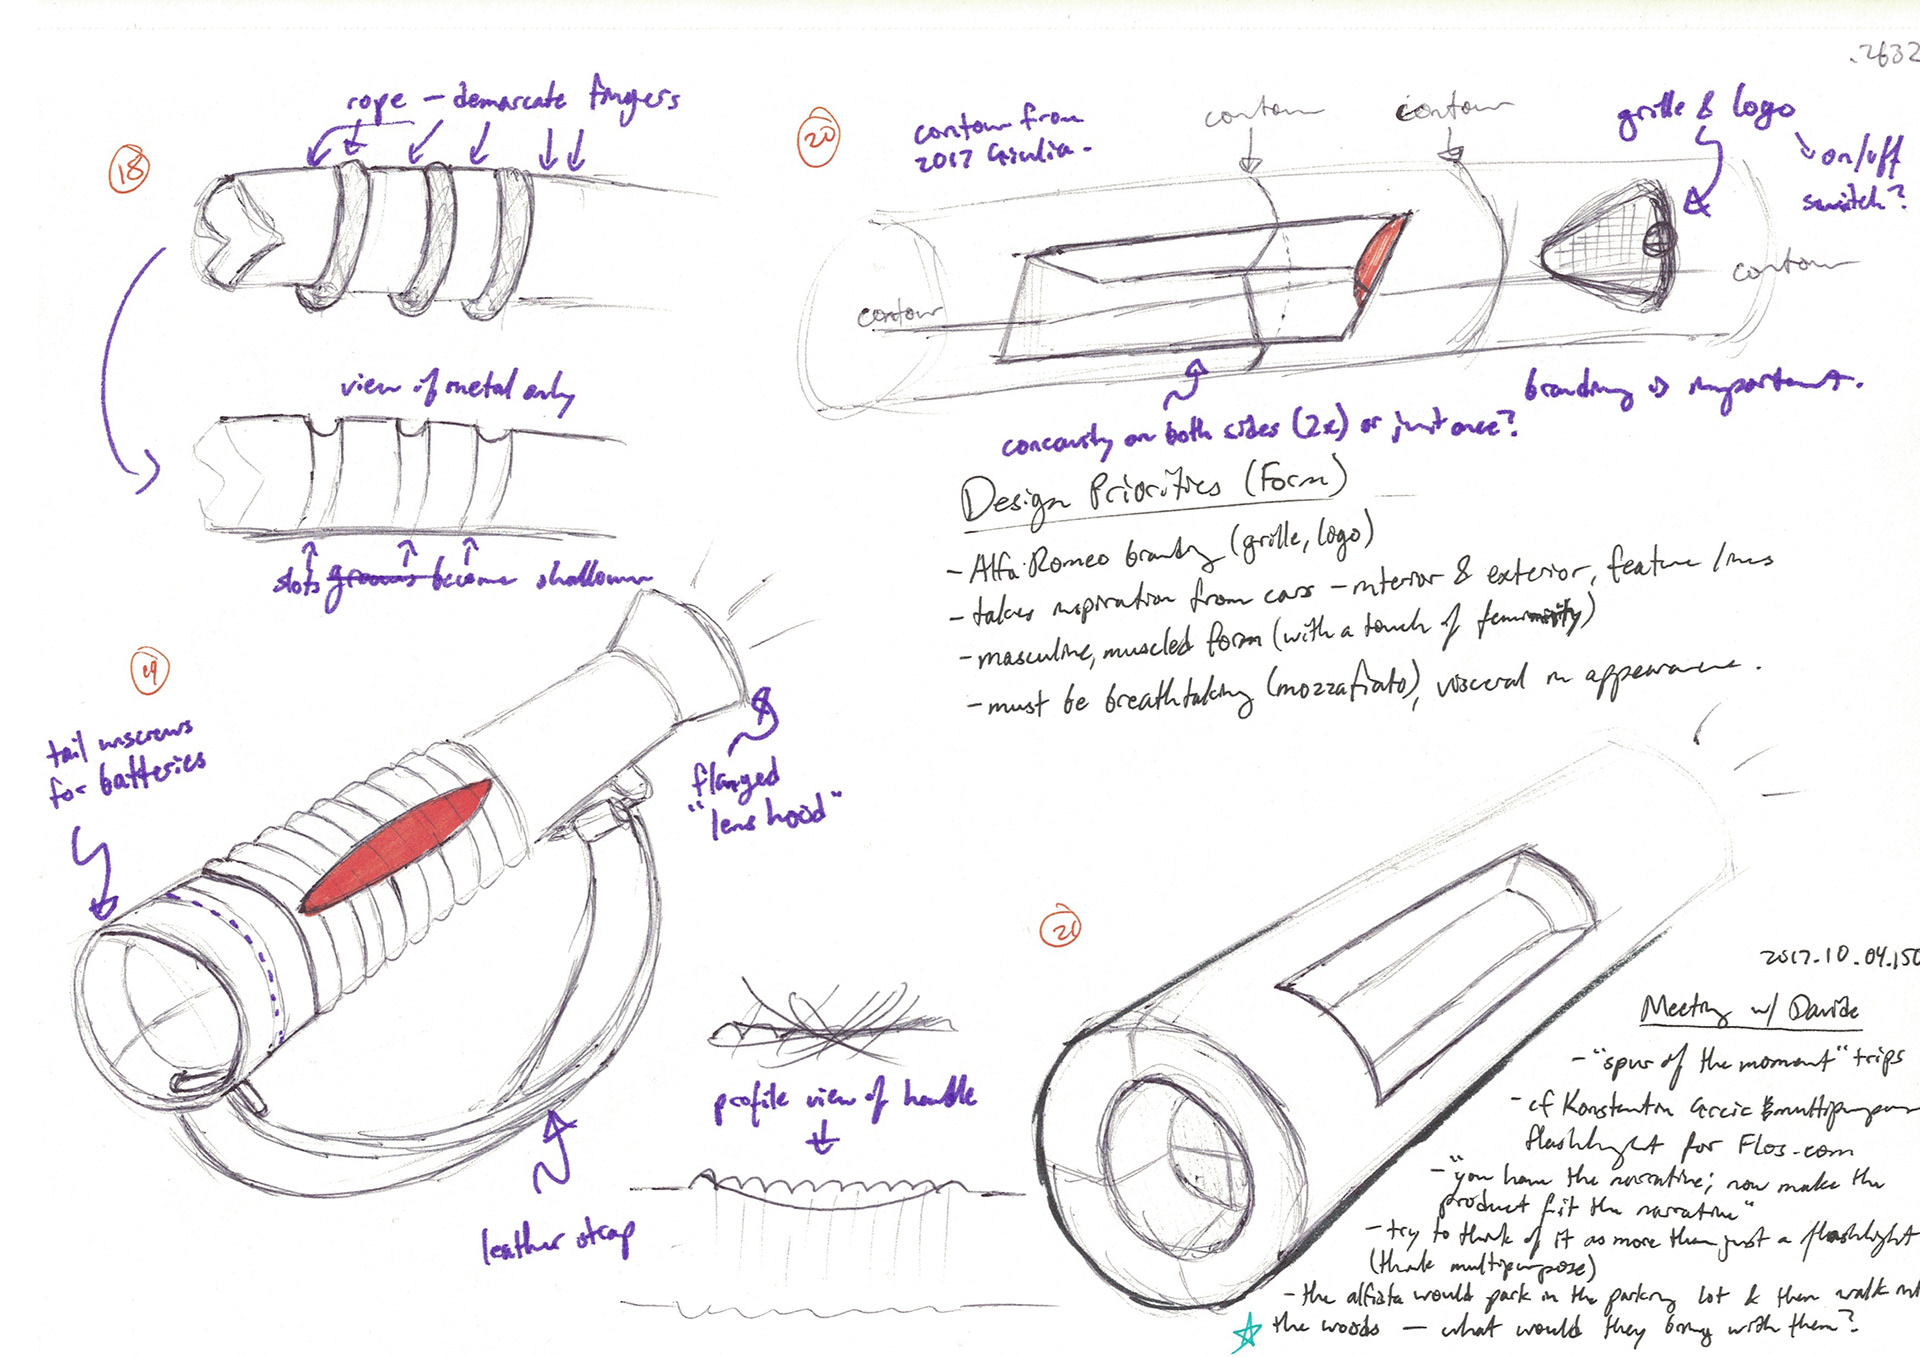 .2632
18
rope — demarcate fingers
view of metal only
slots grooves become shallower
19
tail unscrews
for batteries
flanged
"lens hood"
leather strap
profile view of handle
20
contour from
2017 Giulia -
contour
contour
contour
contour
grille & logo
on/off
switch?
branding is important.
concavity on both sides (2x) or just once?
Design Priorities (Form)
- Alfa Romeo brandy (grille, logo)
- takes inspiration from cars - interior & exterior, feature lines
- masculine, muscled form (with a touch of femininity)
- must be breathtaking (mozzafiato), visceral in appearance.
21
2017.10.04.150
Meeting w/ Davide
- "spur of the moment" trips
- cf Konstantin Grcic multipurpose
flashlight for Flos.com
- "you have the narrative; now make the
product fit the narrative"
- try to think of it as more than just a flashlight
(think multipurpose)
- the alfista would park in the parking lot & then walk
the woods — what would they bring with them?